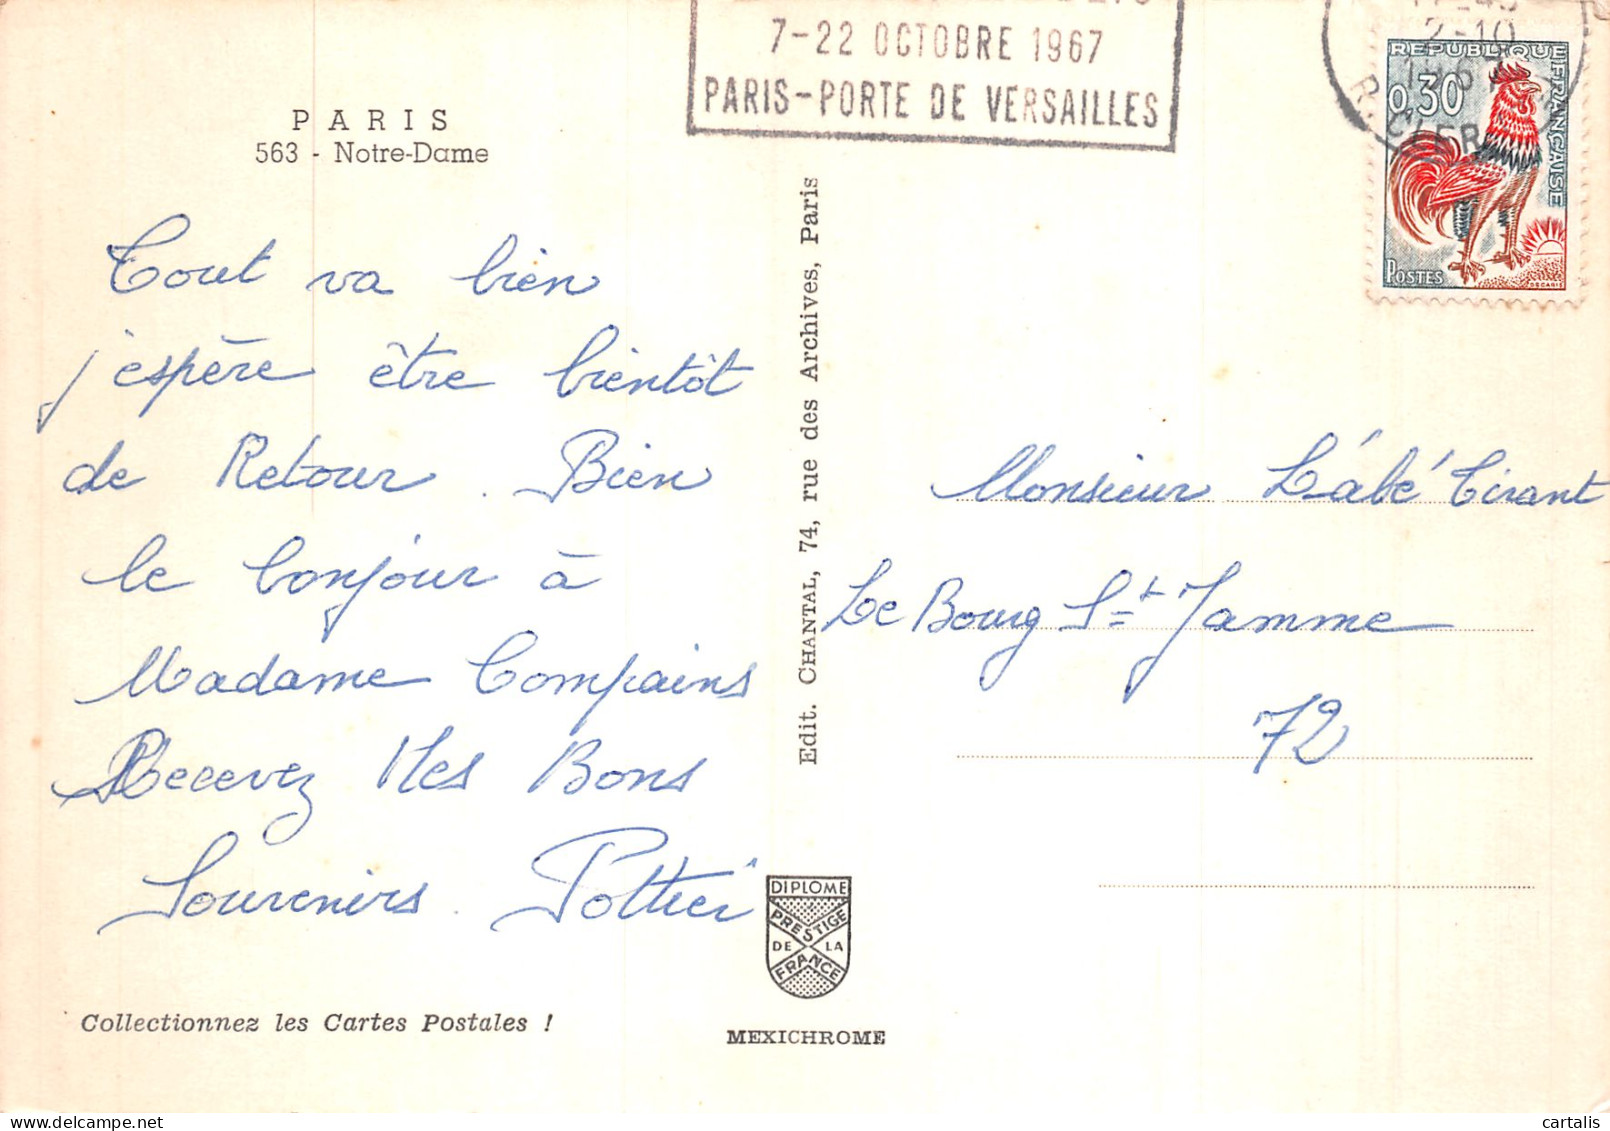 PARIS
563 - Notre-Dame
Tout va bien
j'espère être bientôt
de Retour. Bien
le bonjour à
Madame Compains
Recevez Mes Bons
Souvenirs. Pottier
Collectionnez les Cartes Postales !
Edit. CHANTAL, 74, rue des Archives, Paris
DIPLOME
PRESTIGE
DE LA
FRANCE
MEXICHROME
7-22 OCTOBRE 1967
PARIS-PORTE DE VERSAILLES
2-10
REPUBLIQUE FRANÇAISE
0,30
POSTES
DECARIS
Monsieur L'ábé Tirant
Le Bourg St Jamme
72
cartalis